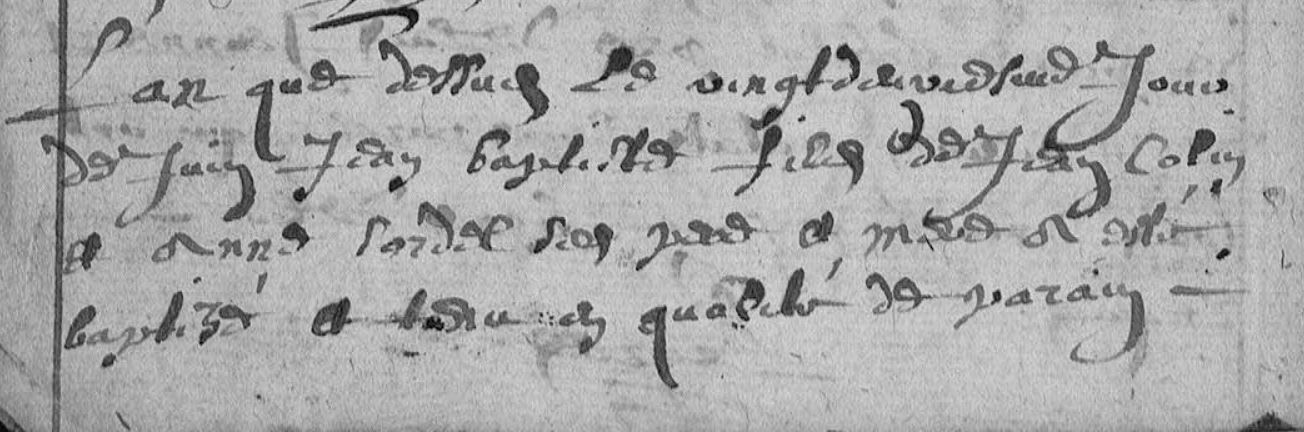 Lan que dessus le vingtdeuxiesme Jour
de Juin Jean baptiste fils de Jean Colin
et Anne sordel ses pere et mere A esté
baptizé et tenu en qualité de parain